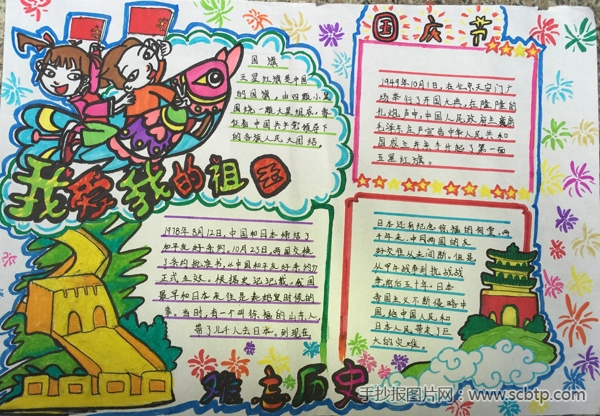 国旗
五星红旗是中国
的国旗，由四颗小星
围绕一颗大星组成，象
征着中国共产党领导下
的各族人民大团结
国庆节
1949年10月1日，在北京天安门广
场举行了开国大典，在隆隆的
礼炮声中，中国人民政府主席
毛泽东庄严宣告中华人民共和
国成立并亲手升起了第一面
五星红旗。
我爱我的祖国
1978年8月12日，中国和日本缔结了
和平友好条约，10月23日，两国交换
了条约批准书，从中国和平友好条约
正式生效。根据史记记载，我国
最早和日本来往是秦始皇时候的
事，当时，有一个叫徐福的山东人，
带了几千人去日本。到现在
日本还有纪念徐福的
千年来，中日两国的友
好交往从未间断，但是，
从甲午战争到抗战战
争，前后五十年，日本
帝国主义不断侵略中
国，给中国人民和
日本人民带来了巨
大的灾难。
难忘历史
手抄报图片网：www.scbtp.com